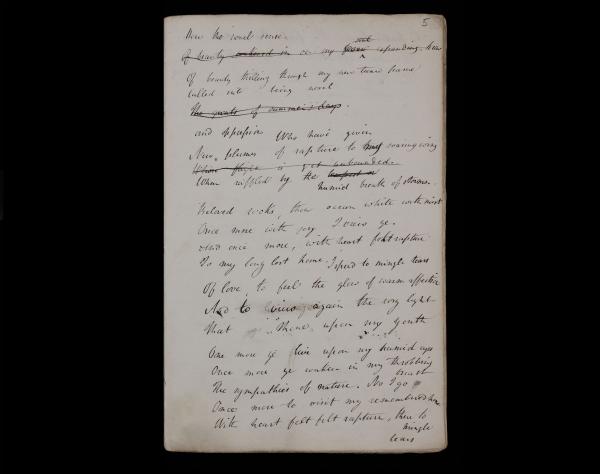 5
New the
out
of beauty in or my expanding
Of beauty thrilling through my new tuned frame
Lulled into being
The of summer's days.
and Who have given
New plumes of rapture to my soaring wing
Whose is yet unbounded.
When ruffled by the
humid breath of storms.
Beloved rocks, thou ocean white with mist
Once more with joy I view ye.
And once more, with heart felt rapture
To my long lost home I speed to mingle tears
Of love, to feel the glow of warm affection
And to view again the rosy light
That shine upon my youth
Once more ye live upon my humid eyes
Once more ye waken in my throbbing
breast
The sympathies of nature. I go
Once more to visit my remembered home
With heart felt felt rapture, there to
mingle
tears